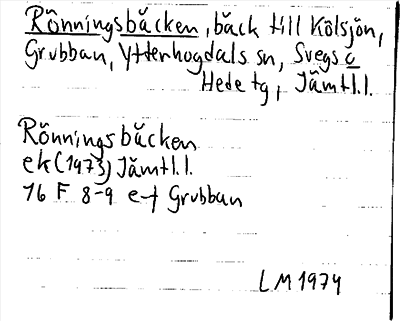 Rönningsbäcken, bäck till Kölsjön,
Grubban, Ytterhogdals sn, Svegs o
Hede tg, Jämtl.l.
Rönningsbäcken
ek (1973) Jämtl.l.
16 F 8-9 e-f Grubban
LM 1974